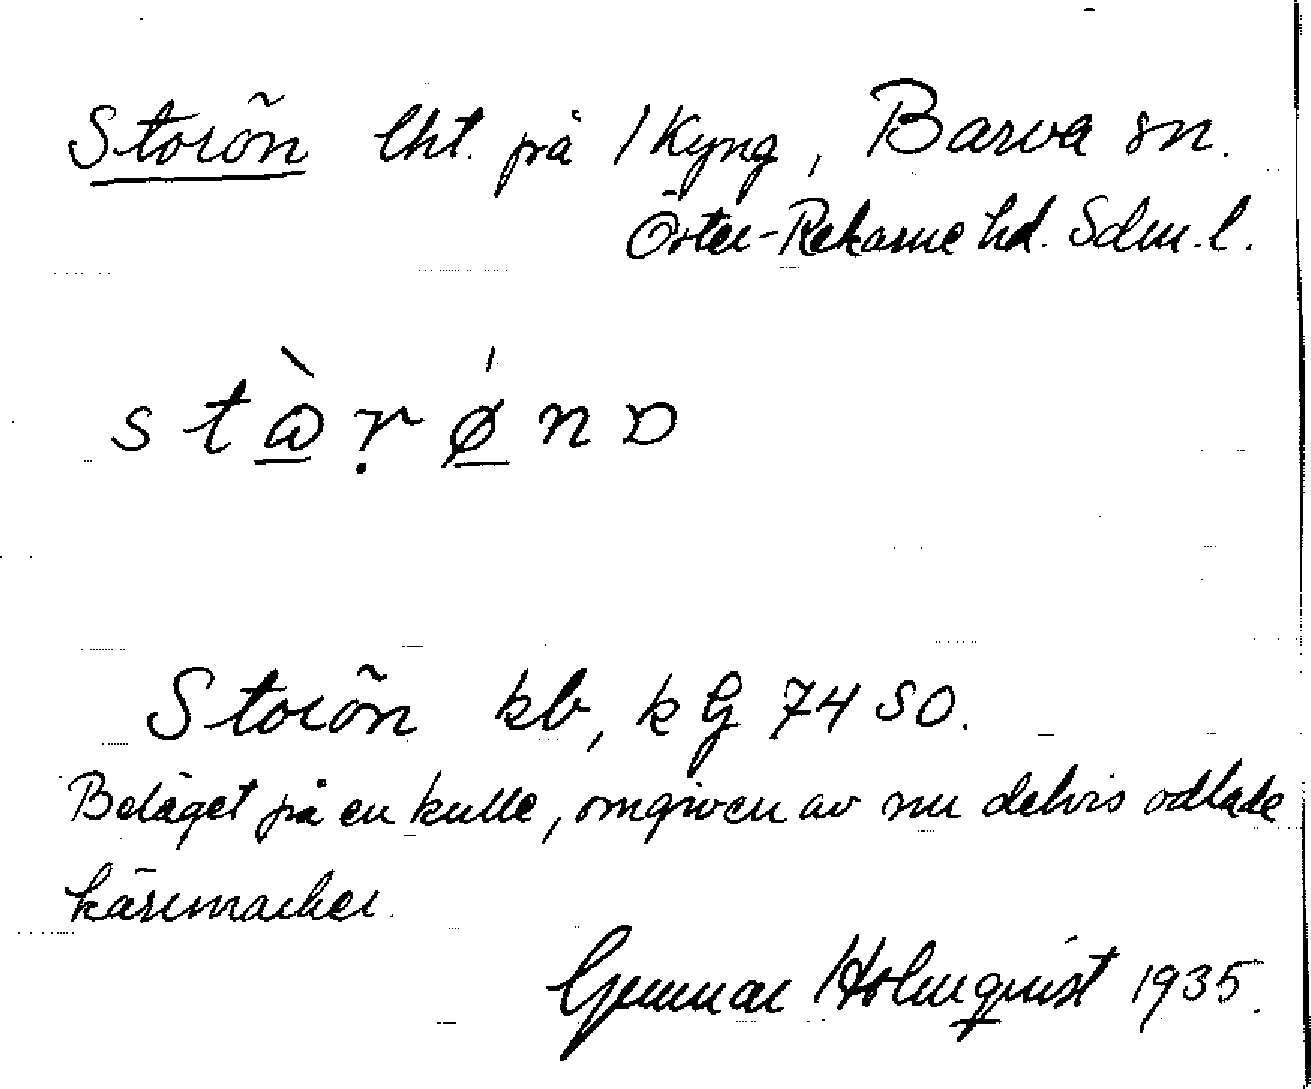 Storön lht. på 1 Kyng, Barva sn.
Öster-Rekarne hd. Sdm. l.
stɷ̀ṛǿnɒ
Storön kb, k G 74 SO.
Beläget på en kulle, omgiven av nu delvis odlade
kärrmarker.
Gunnar Holmquist 1935.